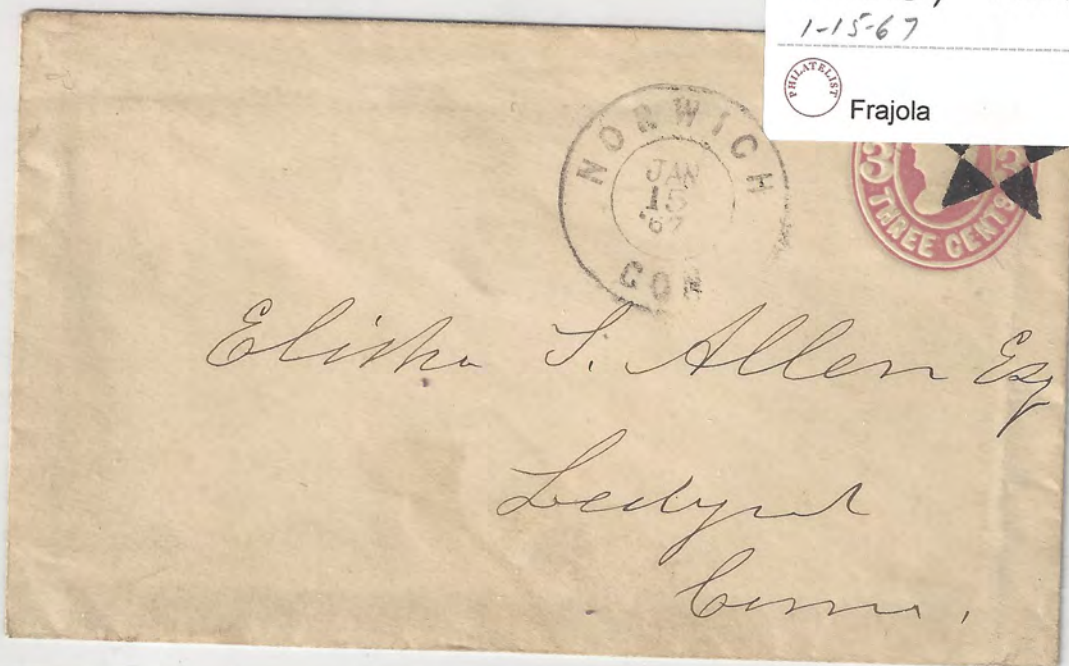 1-15-67
PHILATELIST
Frajola
NORWICH
JAN
15
'67
CON
3 3
THREE CENTS
Elisha S. Allen Esq
Ledyard
Conn.